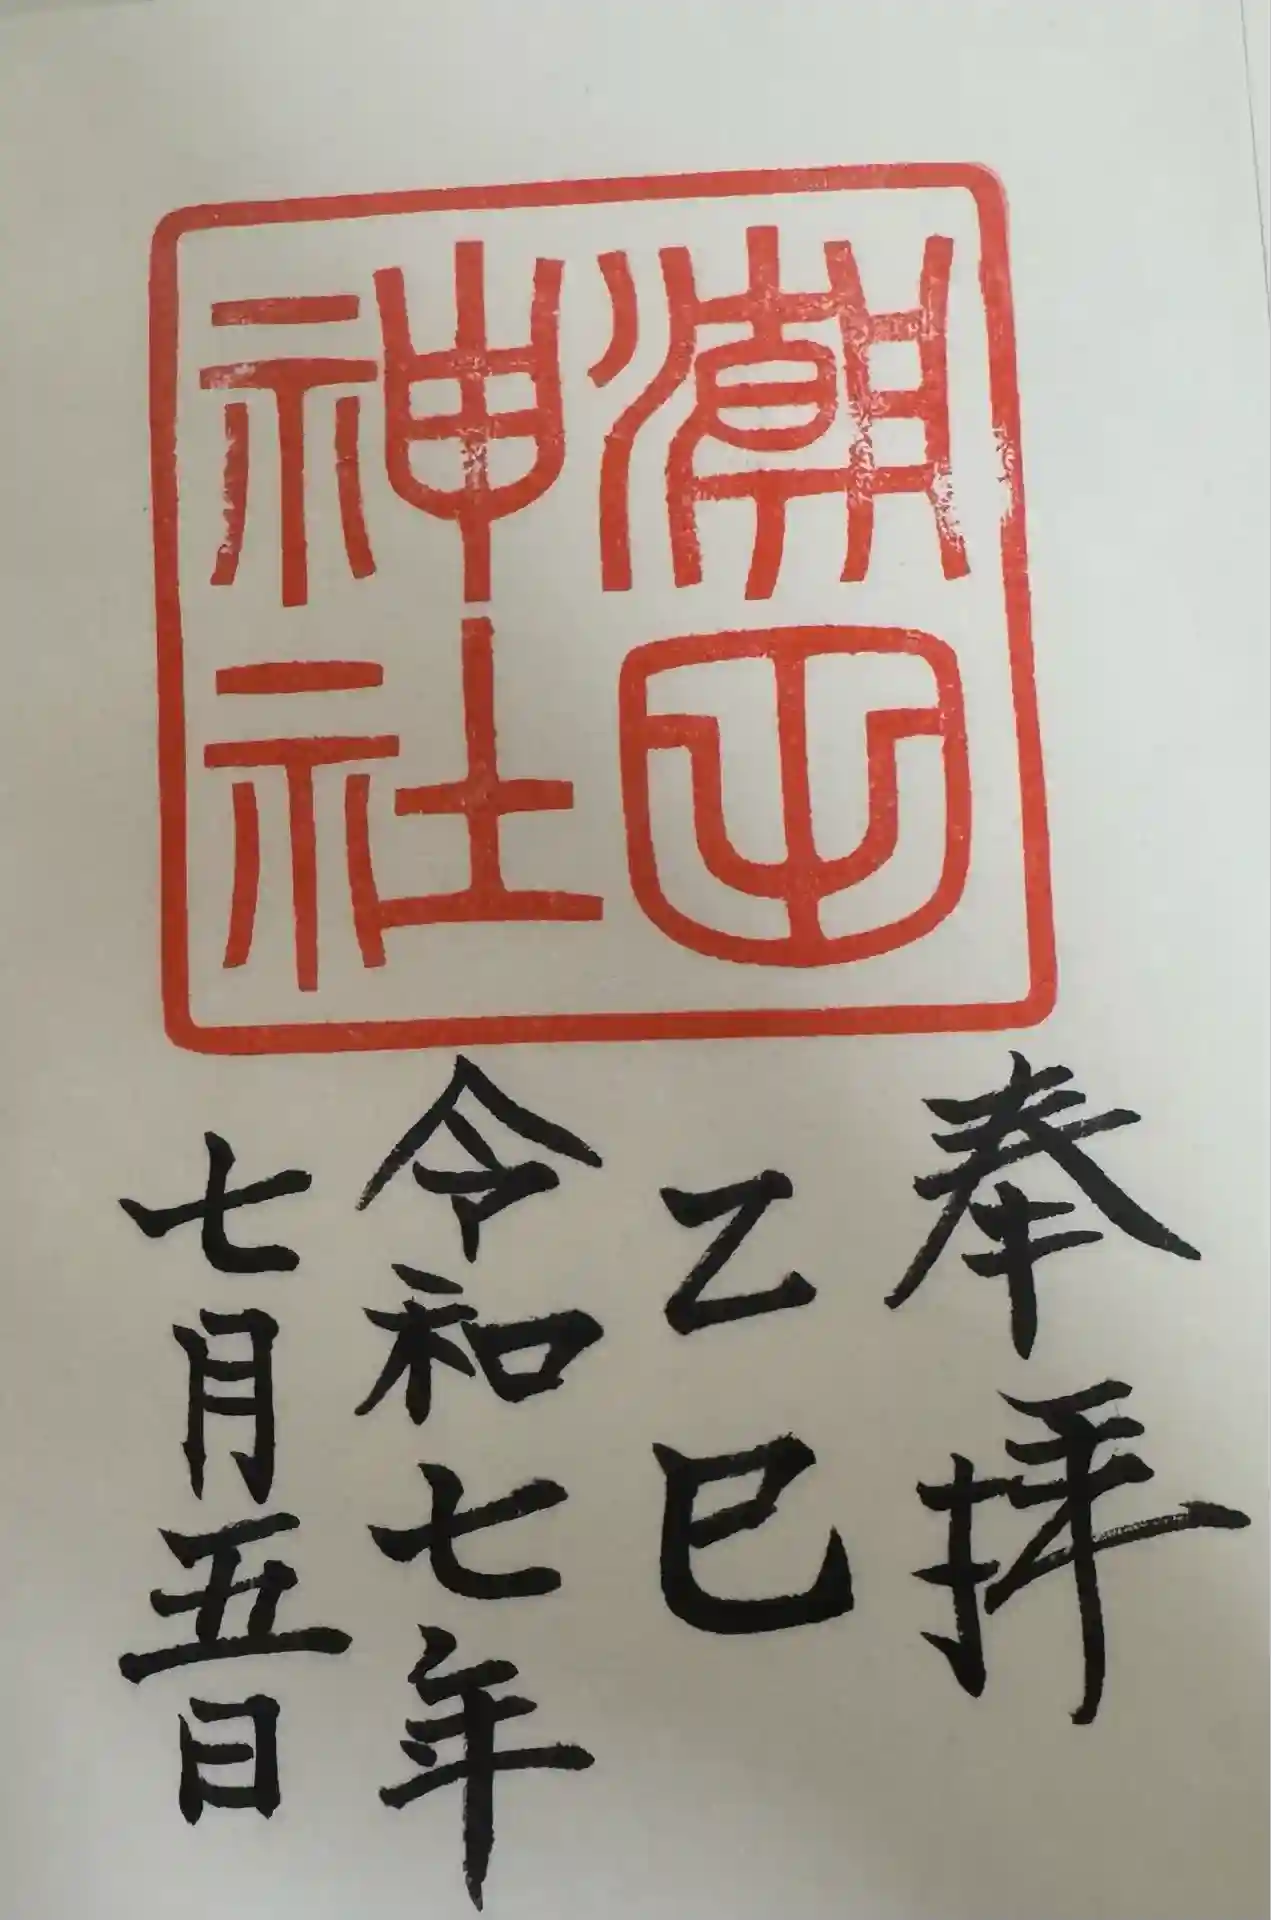 潮田
神社
奉拝
乙巳
令和七年
七月五日